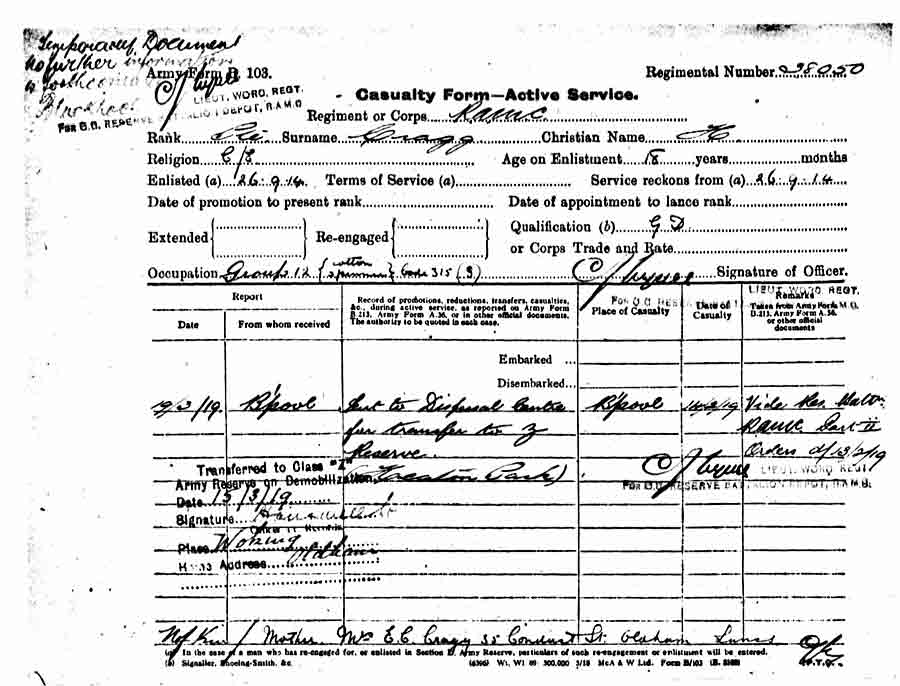 Temporary Document
No further information
Army Form B. 103.
Regimental Number 238050
LIEUT. WORC. REGT.
FOR O.C. RESERVE BATTALION DEPOT, R.A.M.C.
Casualty Form—Active Service.
Regiment or Corps RAMC
Rank Pte Surname Cragg Christian Name H
Religion C/E Age on Enlistment 18 years months
Enlisted (a) 26.9.14 Terms of Service (a) Service reckons from (a) 26.9.14
Date of promotion to present rank Date of appointment to lance rank
Extended { } Re-engaged { } Qualification (b) G D
or Corps Trade and Rate
Occupation Group 12 { cotton } Code 315 (3) Signature of Officer.
LIEUT. WORC. REGT.
Report
Date
From whom received
Record of promotions, reductions, transfers, casualties, &c., during active service, as reported on Army Form B.213, Army Form A.36, or in other official documents. The authority to be quoted in each case.
Place of Casualty
Date of Casualty
Remarks
Taken from Army Form B.213, Army Form A.36, or other official documents
Embarked ...
Disembarked...
B'pool Sent to Dispersal Centre B'pool Vide Res.
for transfer to Z RAMC Part II
Reserve. Orders d/13/2/19
(Heaton Park)
LIEUT. WORC. REGT
FOR O.C. RESERVE BATTALION DEPOT, R.A.M.C.
Transferred to Class "Z"
Army Reserve on Demobilization
Date 15/3/19
Signature
Place Woking
Home Address Oldham
N of Kin / Mother Mrs E.C. Cragg 35 Conduit St. Oldham Lancs
(a) In the case of a man who has re-engaged for, or enlisted in Section D. Army Reserve, particulars of such re-engagement or enlistment will be entered.
(b) Signaller, Shoeing-Smith, &c.
300,000 3/18 McA & W Ltd. Form B/103
P.T.O.